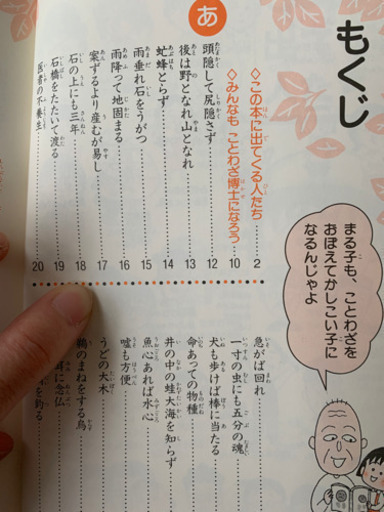 もくじ
◇この本に出てくる人たち 2
◇みんなも ことわざ博士になろう 10
あ
頭隠して尻隠さず 12
後は野となれ山となれ 13
虻蜂とらず 14
雨垂れ石をうがつ 15
雨降って地固まる 16
案ずるより産むが易し 17
石の上にも三年 18
石橋をたたいて渡る 19
医者の不養生 20
急がば回れ
一寸の虫にも五分の魂
犬も歩けば棒に当たる
命あっての物種
井の中の蛙大海を知らず
魚心あれば水心
嘘も方便
うどの大木
鵜のまねをする烏
耳に念仏
を釣る
まる子も、ことわざを
おぼえてかしこい子に
なるんじゃよ